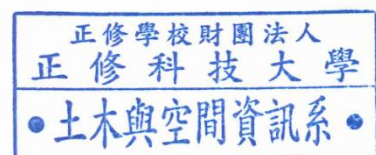 正修學校財團法人
正修科技大學
土木與空間資訊系